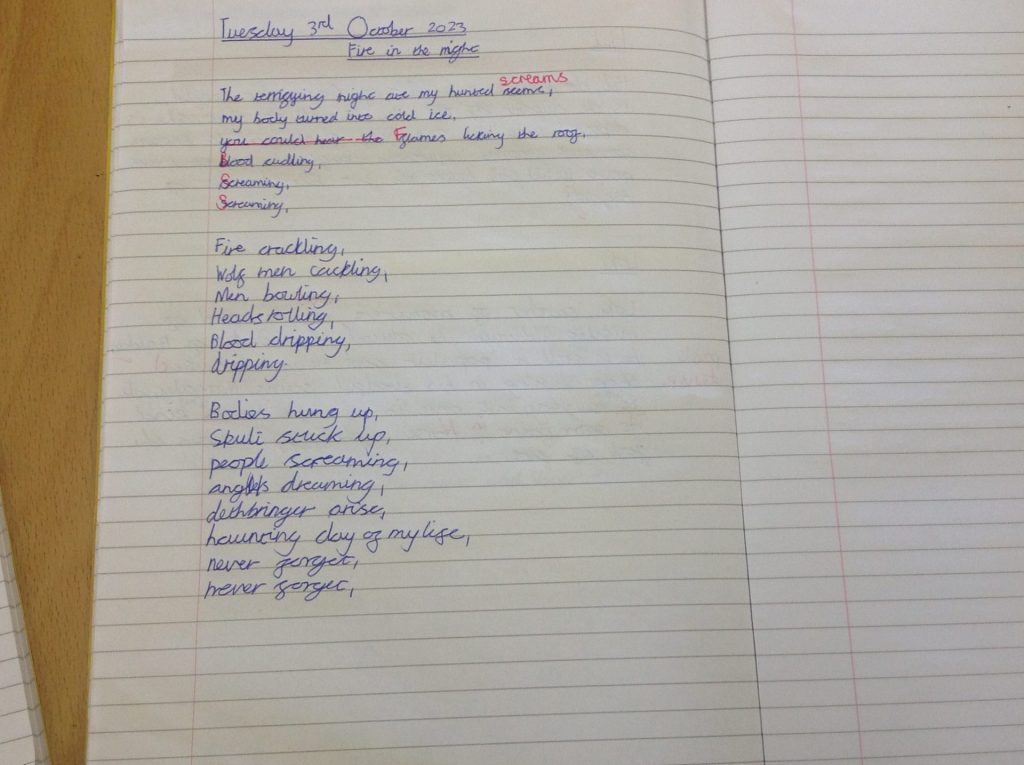 Tuesday 3rd October 2023
Fire in the night
screams
The terrifying night ate my hunted seems,
my body turned into cold ice,
you could hear the Flames licking the roof,
Blood cudling,
Screaming,
Screaming,
Fire crackling,
Wolf men cackling,
Men bowling,
Heads rolling,
Blood dripping,
dripping.
Bodies hung up,
Skull stuck up,
people screaming,
angles dreaming,
dethbringer arise,
haunting day of my life,
never forget,
never forget,